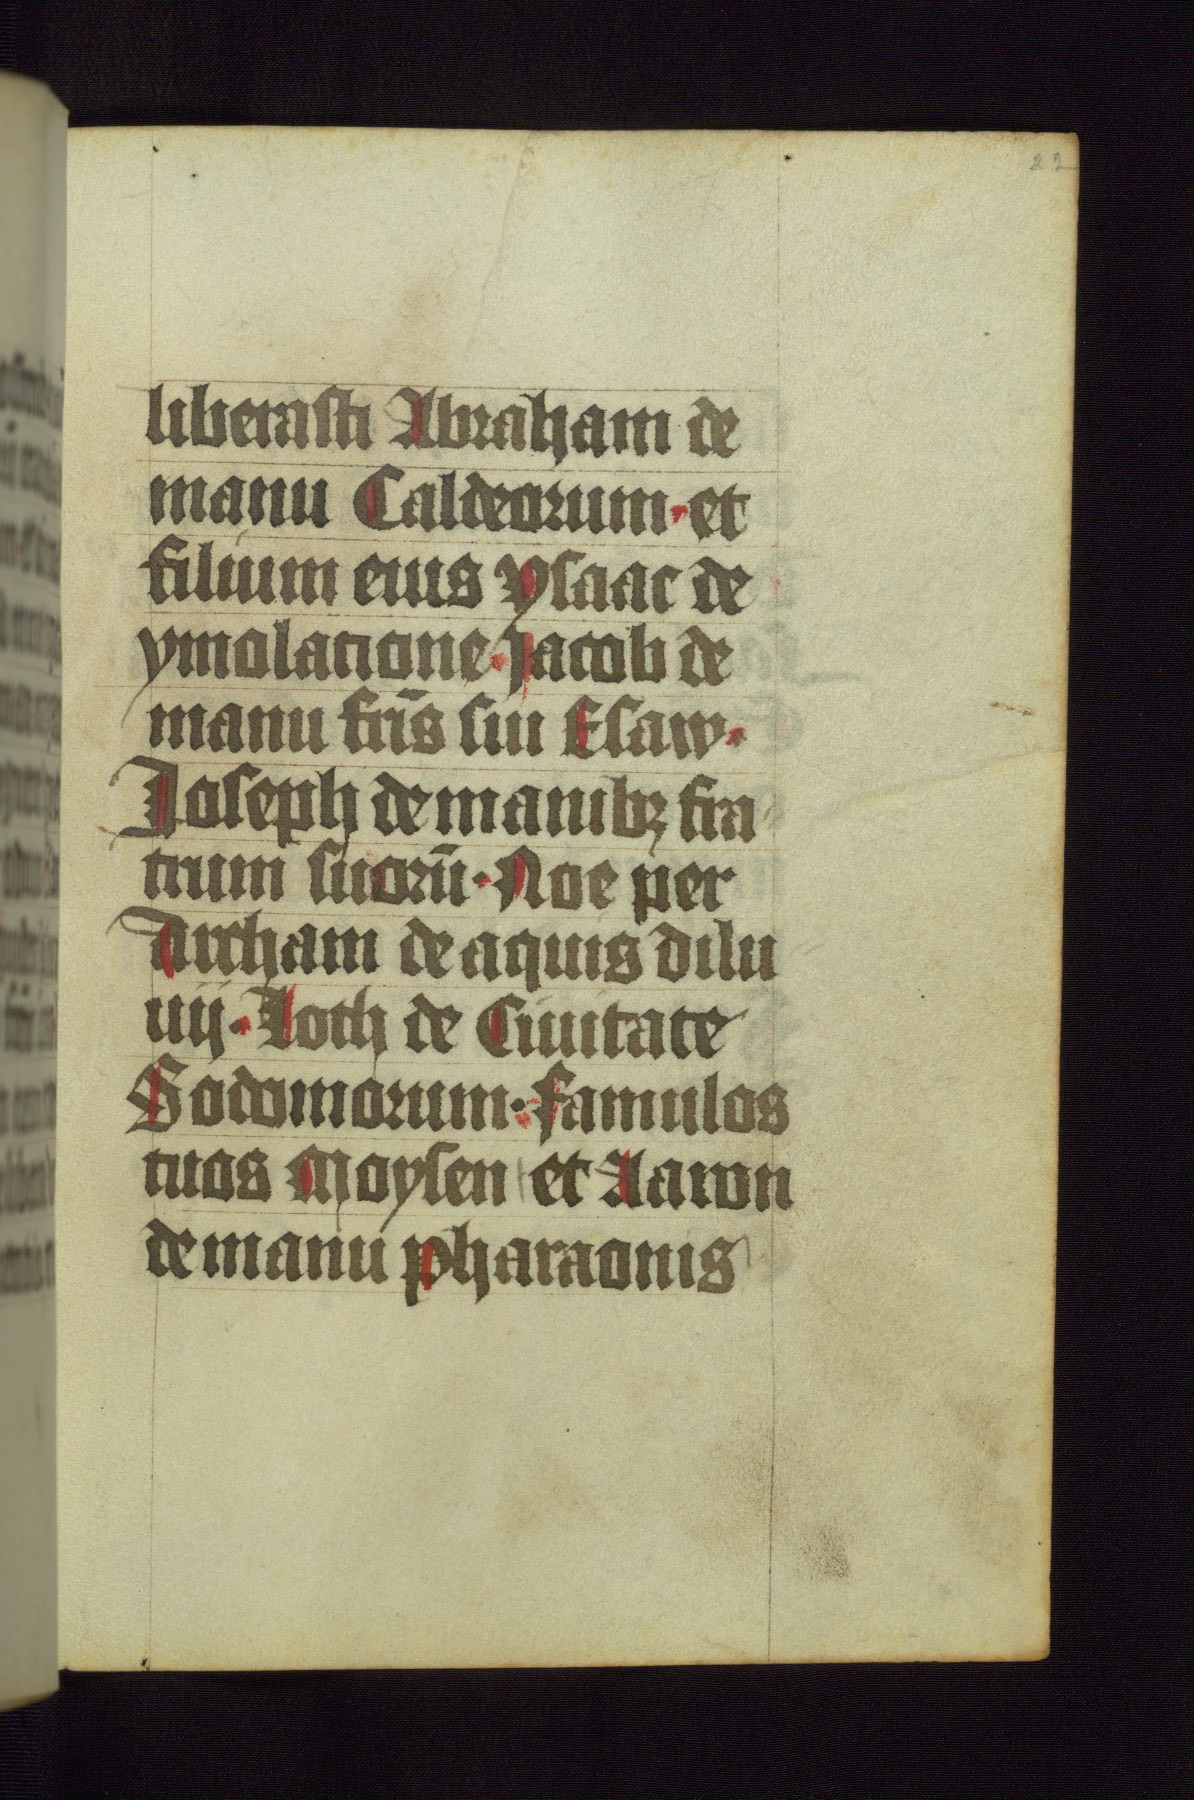 22
liberasti Abraham de
manu Caldeorum · et
filium eius ysaac de
ymolacione · Jacob de
manu fr̃is sui Esaw ·
Joseph de manibꝫ fra
trum suorũ · Noe per
Archam de aquis dilu
uij · Loth de Ciuitate
Sodomorum · famulos
tuos Moysen et Aaron
de manu pharaonis